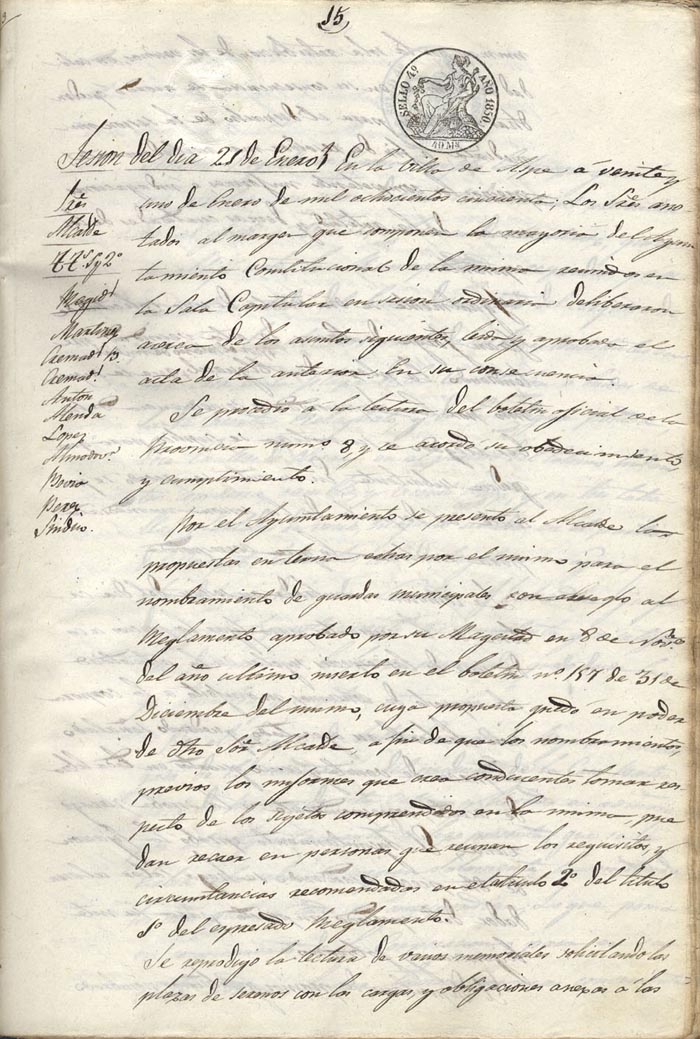 15
SELLO 4º AÑO 1850.
40 Ms
Sesion del dia 21 de Enero
Sres
Alcalde
ttes 1º y 2º
Regid.s
Martinez
Cremads B
Cremad.s
Anton
Menda
Lopez
Almodov.r
Bovio
Perez
Sindico.
En la villa de Aspe á veinte y
uno de Enero de mil ochocientos cincuenta; Los Sres ano
tados al margen que componen la mayoria del Ayun
tamiento Constitucional de la misma reunidos en
la Sala Capitular en sesion ordinaria deliberaron
acerca de los asuntos siguientes, leida y aprobada el
acta de la anterior. En su consecuencia.
Se procedió á la lectura del boletin oficial de la
Provincia numº 8, y se acordó su obedecimiento
y cumplimiento.
Por el Ayuntamiento se presentó al Alcalde las
propuestas en terna echas por el mismo para el
nombramiento de guardas municipales con arreglo al
Reglamento aprobado por su Magestad en 8 de Novbre
del año ultimo inserto en el boletin nº 157 de 31 de
Diciembre del mismo, cuya propuesta quedó en poder
de dho Sor Alcalde, a fin de que los nombramientos,
previos los informes que crea conducentes tomar res
pecto de los sujetos comprendidos en la misma, pue
dan recaer en personas que reunan los requisitos, y
circunstancias recomendadas en el articulo 2º del titulo
1º del espresado Reglamento.
Se reprodujo la lectura de varios memoriales solicitando las
plazas de serenos con las cargas, y obligaciones anexas á las